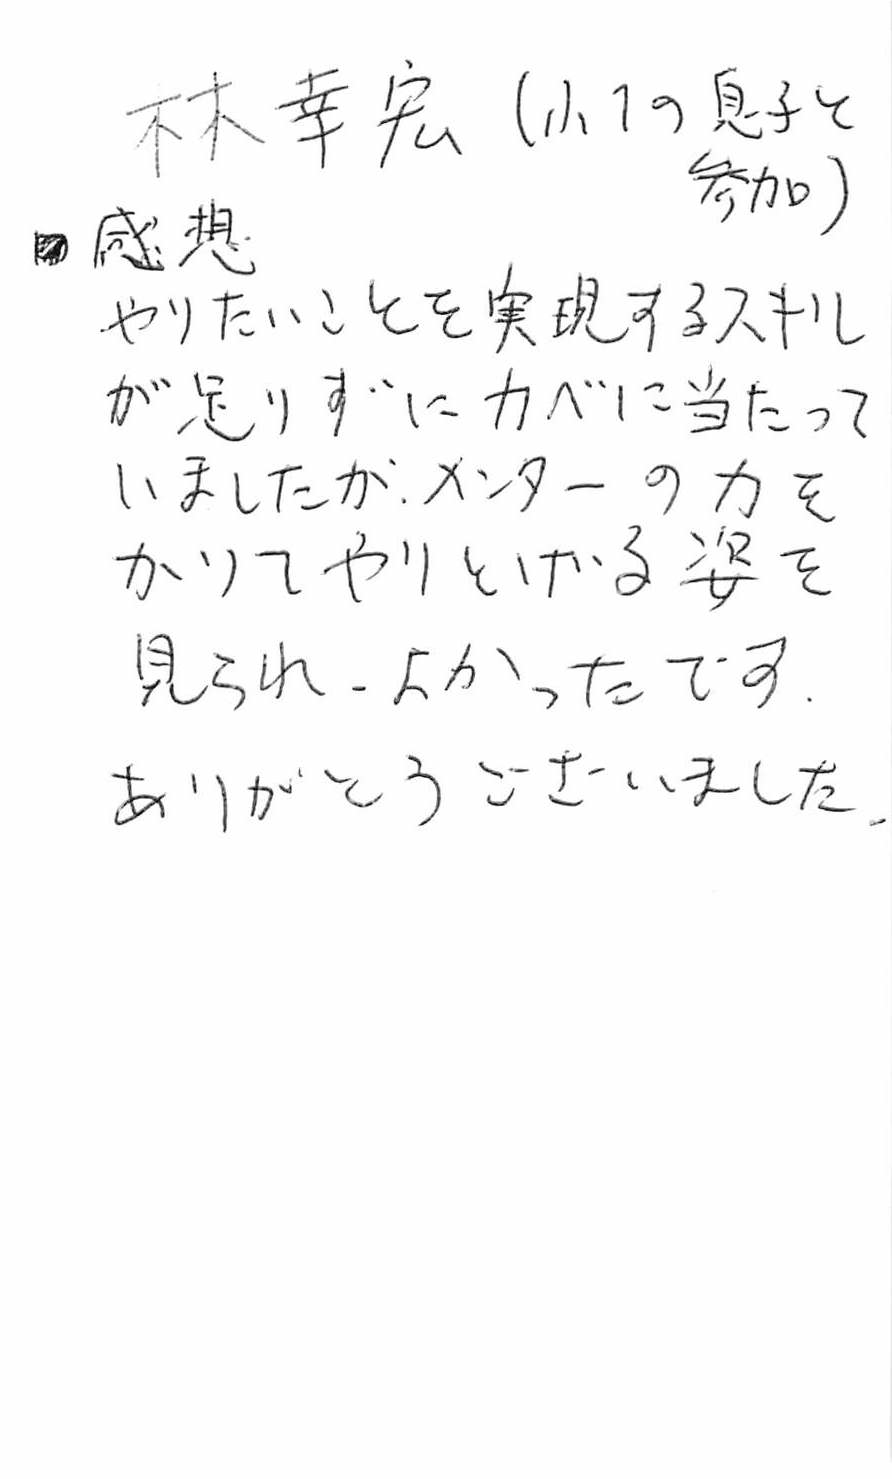 林幸宏(小1の息子と
参加)
感想
やりたいことを実現するスキル
が足りずにカベに当たって
いましたが、メンターの力を
かりてやりとげる姿を
見られ、よかったです.
ありがとうございました.